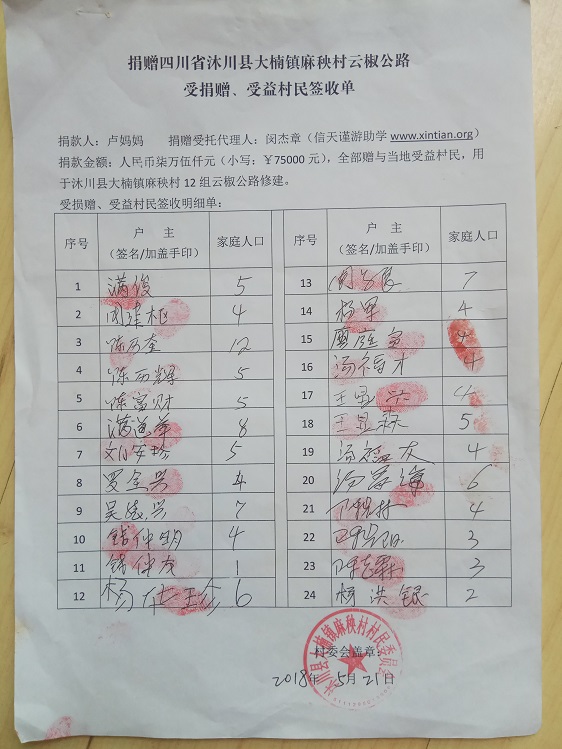 捐赠四川省沐川县大楠镇麻秧村云椒公路
受捐赠、受益村民签收单
捐款人：卢妈妈 捐赠受托代理人：闵杰章（信天谨游助学 www.xintian.org）
捐款金额：人民币柒万伍仟元（小写：￥75000 元），全部赠与当地受益村民，用
于沐川县大楠镇麻秧村 12 组云椒公路修建。
受损赠、受益村民签收明细单：
序号 户 主 家庭人口 序号 户 主 家庭人口
（签名/加盖手印） （签名/加盖手印）
1 满俊 5 13 7
2 周建根 4 14 杨军 4
3 陈万奎 12 15 廖庭金 4
4 陈万辉 5 16 汤福才 4
5 陈富财 5 17 王显兴 4
6 8 18 王显森 5
7 刘安珍 5 19 汤福友 4
8 罗金兴 4 20 6
9 吴德兴 7 21 4
10 钱仲明 4 22 3
11 钱仲友 1 23 3
12 杨 珍 6 24 杨洪银 2
沐川县大楠镇麻秧村村民委员会
村委会盖章：
2018年 5月21日